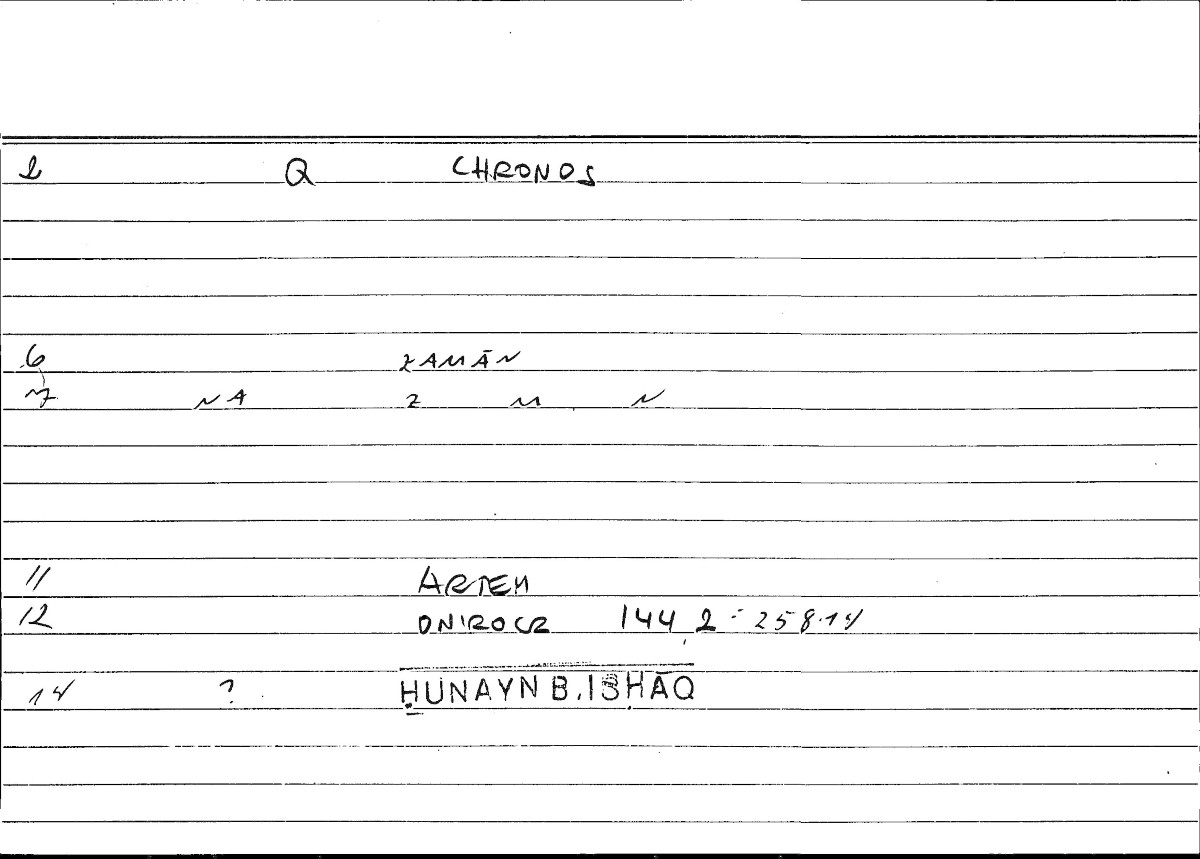 2 Q CHRONOS
6 ZAMĀN
7 NA Z M N
11 ARTEM
12 ONIROCR 144,2 = 258.14
14 ? ḤUNAYN B. ISḤĀQ